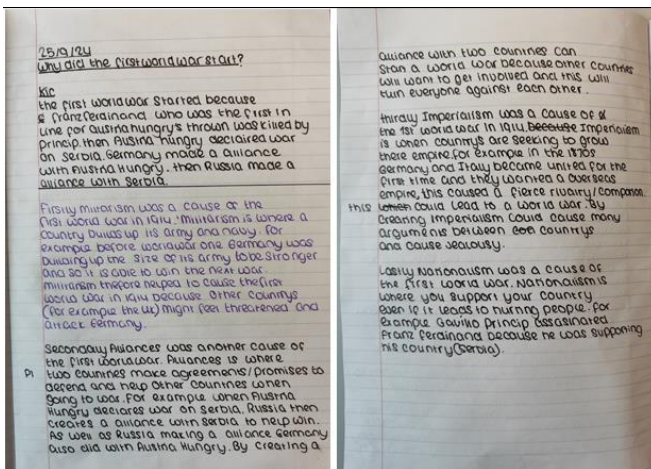 25/9/24
Why did the first world war start?
KiC
the first world war started because
franz ferdinand who was the first in
line for austria hungry's thrown was killed by
princip. then Austria hungry declaired war
on Serbia. Germany made a alliance
with Austria Hungry. then Russia made a
alliance with Serbia.
Firstly militarism was a cause of the
first world war in 1914. Militarism is where a
country builds up its army and navy. For
example before world war one Germany was
building up the size of its army to be stronger
and so it is able to win the next war.
militarism therefore helped to cause the first
world war in 1914 because other countrys
(for example the uk) might feel threatened and
attack Germany.
Secondally Alliances was another cause of
the first world war. Alliances is where
two countries make agreements/promises to
defend and help other countries when
going to war. For example when Austria
Hungry declares war on Serbia, Russia then
creates a alliance with serbia to help win.
As well as Russia making a alliance Germany
also did with Austria Hungry. By creating a
alliance with two countries can
start a world war because other countries
will want to get involved and this will
turn everyone against each other.
thirdly Imperialism was a cause of
the 1st world war in 1914. because Imperialism
is when countrys are seeking to grow
there empire. for example in the 1870s
Germany and Italy became united for the
first time and they wanted a overseas
empire, this caused a fierce rivalry/
this which could lead to a world war. By
creating imperialism could cause many
arguments between countrys
and cause jealousy.
Lastly Nationalism was a cause of
the first world war. Nationalism is
where you support your country
even if it leads to hurting people. For
example Gavrilo Princip assasinated
Franz ferdinand because he was supporting
his country (Serbia).